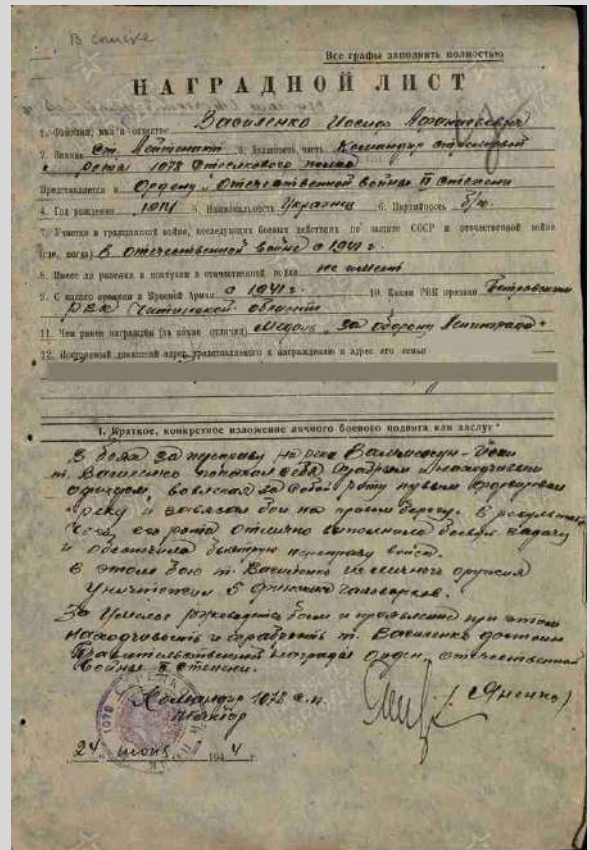 В списке
Все графы заполнить полностью
НАГРАДНОЙ ЛИСТ
1. Фамилия, имя и отчество Василенко Иосиф Афанасьевич
2. Звание Ст. Лейтенант 3. Должность, часть Командир стрелковой
роты 1078 Стрелкового полка
Представляется к Ордену "Отечественной войны II степени
4. Год рождения 1914 5. Национальность Украинец 6. Партийность б/п.
7. Участие в гражданской войне, последующих боевых действиях по защите СССР и отечественной войне
(где, когда) в отечественной войне с 1941 г.
8. Имеет ли ранения и контузии в отечественной войне не имеет
9. С какого времени в Красной Армии с 1941 г. 10. Каким РВК призван Петровским
РВК Читинской области
11. Чем ранее награжден (за какие отличия) Медаль "За оборону Ленинграда"
12. Постоянный домашний адрес представляемого к награждению и адрес его семьи
I. Краткое, конкретное изложение личного боевого подвига или заслуг
В боях за на реке
т. Василенко показал себя храбрым и находчивым
офицером, за собой роту первым форсировал
реку и завязал бой на правом берегу. В результате
чего его рота отлично выполнила боевую задачу
и обеспечила быструю переправу войск.
В этом бою т. Василенко из личного оружия
уничтожил 5 финских
За умелое руководство боем и проявленные при этом
находчивость и храбрость т. Василенко достоин
Правительственной награды орден "отечественной
войны II степени.
Командир 1078 с.п.
Майор
(Яненко)
1078
"24" июня 1944 г.